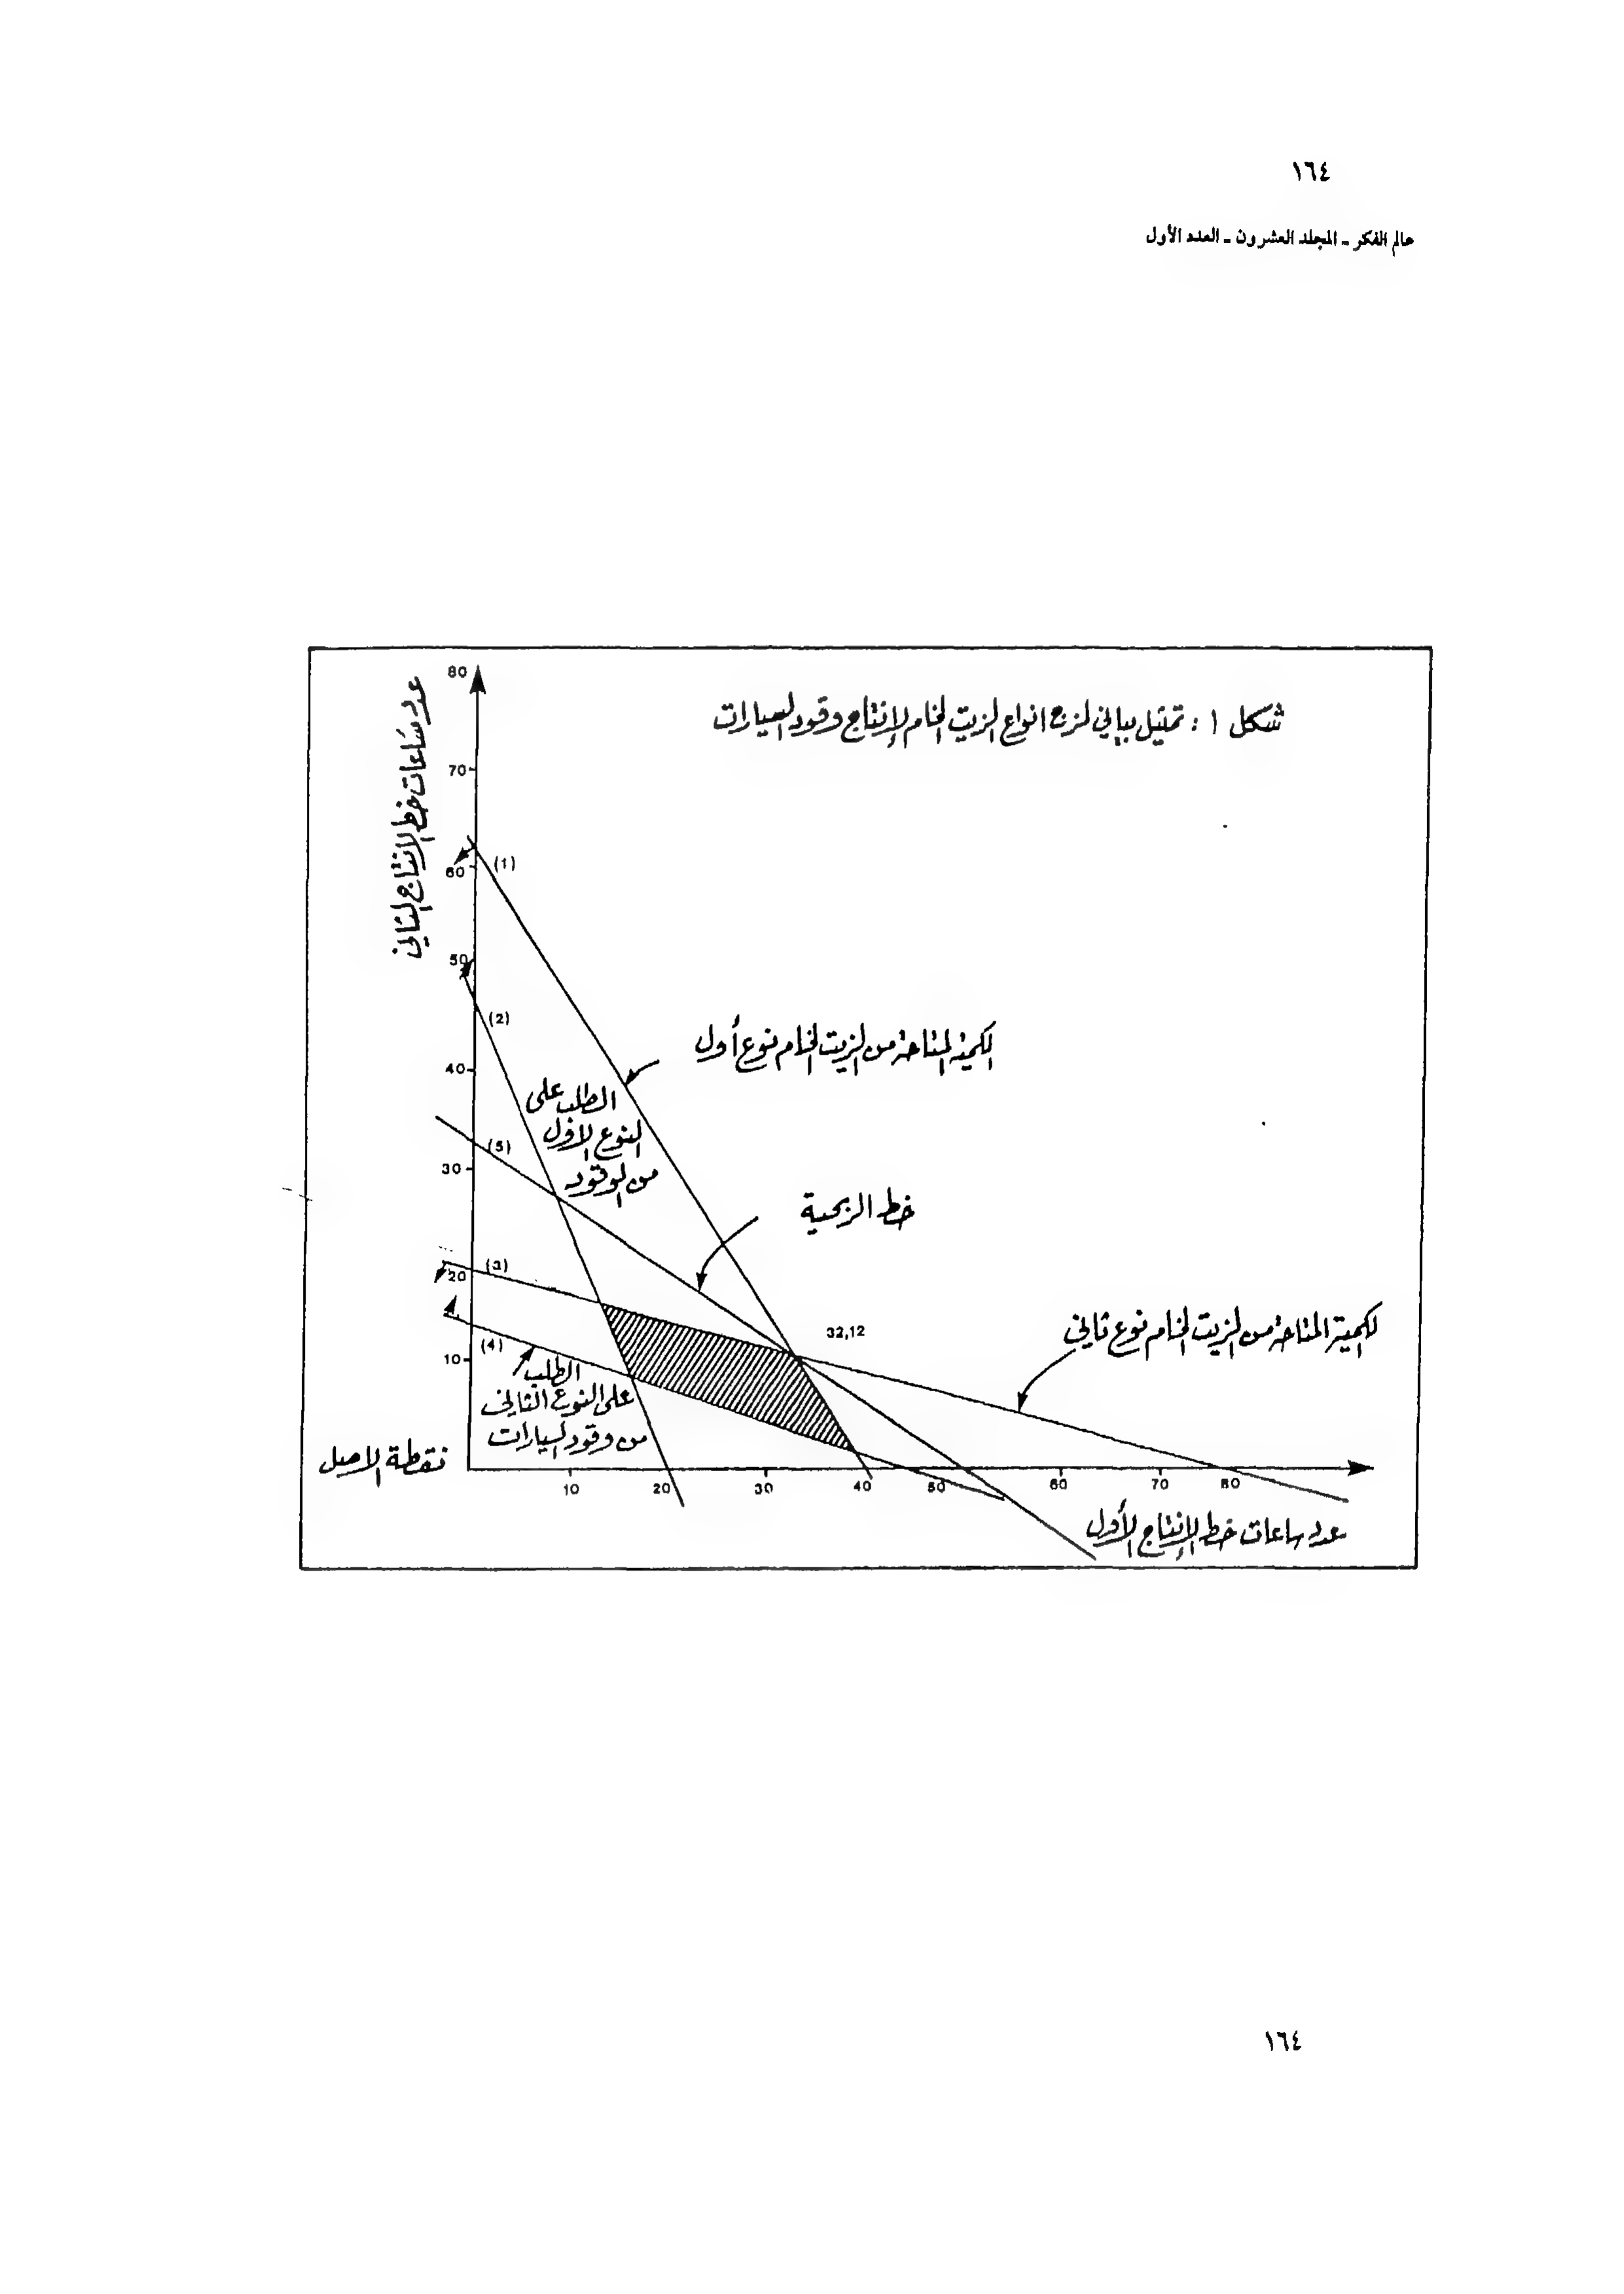 ١٦٤
عالم الفكر ـ المجلد العشرون ـ العدد الأول
شكل ١ : تمثيل بياني لمزج انواع الزيت الخام لإنتاج وقود السيارات
عدد ساعات خط الإنتاج الثاني
80
70
60
50
40
30
20
10
(1)
(2)
(5)
(3)
(4)
الكمية المتاحة من الزيت الخام نوع أول
الطلب على
النوع الاول
من الوقود
خط الربحية
32,12
الكمية المتاحة من الزيت الخام نوع ثاني
الطلب
على النوع الثاني
من وقود السيارات
نقطة الاصل
10 20 30 40 50 60 70 80
عدد ساعات خط الإنتاج الأول
١٦٤